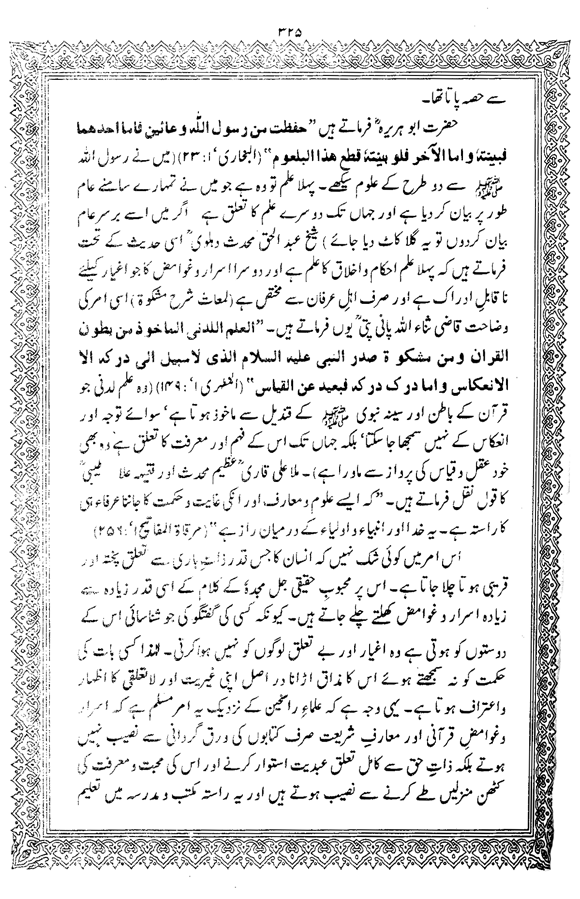 ۳۲۵
سے حصہ پاتا تھا۔
حضرت ابو ہریرہؓ فرماتے ہیں ”حفظت من رسول اللّٰه وعائین فاما احدهما
فبیتهٗ واما الآخر فلو بیتهٗ قطع هذا البلعوم“ (البخاری‘ ۱: ۲۳) (میں نے رسول اللہ
ﷺ سے دو طرح کے علوم سیکھے۔ پہلا علم تو وہ ہے جو میں نے تمہارے سامنے عام
طور پر بیان کر دیا ہے اور جہاں تک دوسرے علم کا تعلق ہے اگر میں اسے برسرعام
بیان کردوں تو یہ گلا کاٹ دیا جائے) شیخ عبدالحق محدث دہلویؒ اسی حدیث کے تحت
فرماتے ہیں کہ پہلا علم احکام واخلاق کا علم ہے اور دوسرا اسرار وغوامض کا جو اغیار کیلئے
ناقابل ادراک ہے اور صرف اہل عرفان سے مختص ہے (لمعات شرح مشکوۃ) اسی امر کی
وضاحت قاضی ثناء اللہ پانی پتیؒ یوں فرماتے ہیں۔ ”العلم اللدنی الماخوذ من بطون
القران ومن مشکوة صدر النبی علیه السلام الذی لاسبیل الی درکه الا
الانعکاس واما درک درکه فبعید عن القیاس“ (المظہری‘ ۱: ۱۴۹) (وہ علم لدنی جو
قرآن کے باطن اور سینہ نبوی ﷺ کے قندیل سے ماخوذ ہوتا ہے‘ سوائے توجہ اور
انعکاس کے نہیں سمجھا جاسکتا‘ بلکہ جہاں تک اس کے فہم اور معرفت کا تعلق ہے وہ بھی
خود عقل وقیاس کی پرواز سے ماورا ہے)۔ ملا علی قاریؒ عظیم محدث اور فقیہہ علامہ طیبیؒ
کا قول نقل فرماتے ہیں۔ ”کہ ایسے علوم ومعارف اور انکی غایت وحکمت کا جاننا عرفاء ہی
کا راستہ ہے۔ یہ خدا اور انبیاء واولیاء کے درمیان راز ہے“ (مرقاۃ المفاتیح‘ ۱: ۲۵۶)
اس امر میں کوئی شک نہیں کہ انسان کا جس قدر ذات باری سے تعلق پختہ اور
قریبی ہوتا چلا جاتا ہے۔ اس پر محبوب حقیقی جل مجدہٗ کے کلام کے اسی قدر زیادہ سے
زیادہ اسرار وغوامض کھلتے چلے جاتے ہیں۔ کیونکہ کسی کی گفتگو کی جو شناسائی اس کے
دوستوں کو ہوتی ہے وہ اغیار اور بے تعلق لوگوں کو نہیں ہوا کرتی۔ لہٰذا کسی بات کی
حکمت کو نہ سمجھتے ہوئے اس کا مذاق اڑانا در اصل اپنی غیریت اور لاتعلقی کا اظہار
واعتراف ہوتا ہے۔ یہی وجہ ہے کہ علماء راسخین کے نزدیک یہ امر مسلم ہے کہ اسرار
وغوامض قرآنی اور معارف شریعت صرف کتابوں کی ورق گردانی سے نصیب نہیں
ہوتے بلکہ ذات حق سے کامل تعلق عبدیت استوار کرنے اور اس کی محبت ومعرفت کی
کٹھن منزلیں طے کرنے سے نصیب ہوتے ہیں اور یہ راستہ مکتب ومدرسہ میں تعلیم